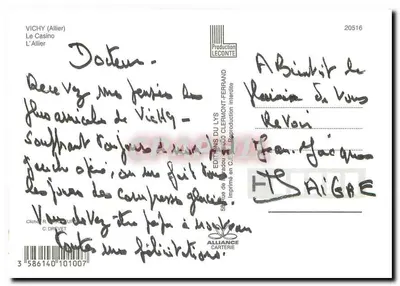 VICHY (Allier)
Le Casino
L'Allier
Docteur -
Recevez mes pensées les
plus amicales de Vichy -
souffrant toujours
on me fait tous
les jours des compresses glacées.
Vous devez être papa à nouveau
toutes mes félicitations.
Production
LECONTE
20516
A Bientôt le
plaisir de vous
revoir
Jean-Jacques
DAIGRE
EDITIONS DU LYS
CLERMONT-FERRAND
Reproduction interdite
ALLIANCE
CARTERIE
C. DREVET
3 586140 101007